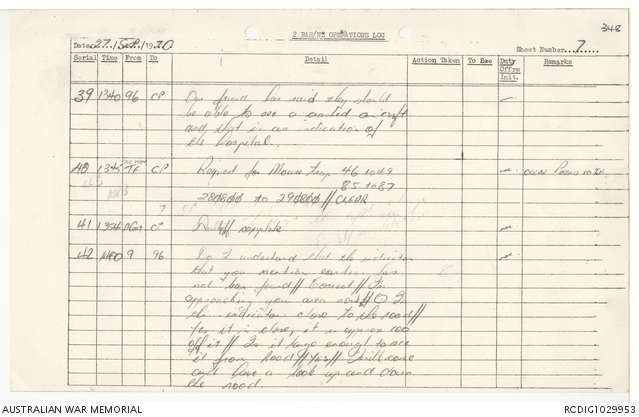 348
2 RAR/NZ OPERATIONS LOG
Date 27/Sep/1970 Sheet Number 7
Serial Time From To Detail Action Taken To See Duty Offrs Init. Remarks
39 1340 96 CP Our friend has said they should
be able to see a aircraft
and that is an indication of
the hospital.
40 1345 TF CP Request for Mouse Trap 46 1049
85 1087
280800 to 290800 // CLEAR
41 1354 CP complete
42 1400 9 96 Do I understand that the indication
that you mention earlier has
not been found // Correct // I'm
approaching your area now // Is
the indication close to the road //
Yes it is close, it is approx 100
off it // Is it large enough to see
it from road // Yes // I will come
and have a look up and down
the road
AUSTRALIAN WAR MEMORIAL RCDIG1029953